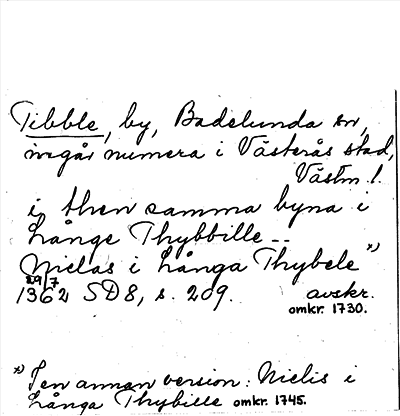 Tibble, by, Badelunda sn,
ingår numera i Västerås stad,
Västm. l.
i then samma byna i
Långe Thybbille --
Niclas i Långa Thybele" *)
29/7
1362 SD 8, s. 209. avskr.
omkr. 1730.
*) I en annan version: Niclis i
Långa Thybille omkr. 1745.